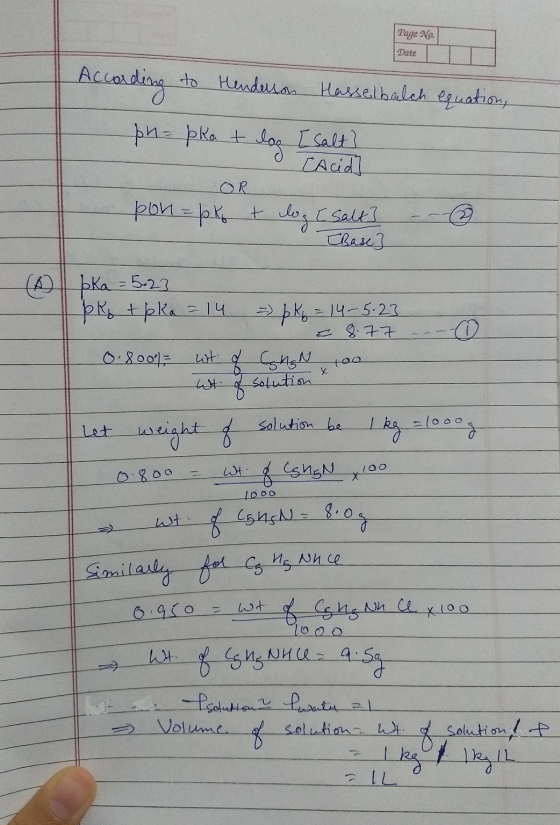 Page No.
Date
According to Henderson Hasselbalch equation,
pH = pKa + log [Salt]/[Acid]
OR
pOH = pKb + log [Salt]/[Base] ---- ②
(A) pKa = 5.23
pKb + pKa = 14 ⇒ pKb = 14 - 5.23
= 8.77 ---- ①
0.800% = wt of C5H5N / wt. of solution × 100
Let weight of solution be 1 kg = 1000 g
0.800 = wt. of C5H5N / 1000 × 100
⇒ wt. of C5H5N = 8.0 g
Similarly for C5H5NHCl
0.950 = wt of C5H5NHCl / 1000 × 100
⇒ wt. of C5H5NHCl = 9.5g
ρsolution ≃ ρwater = 1
⇒ Volume of solution = wt. of solution / ρ
= 1 kg / 1 kg/L
= 1L